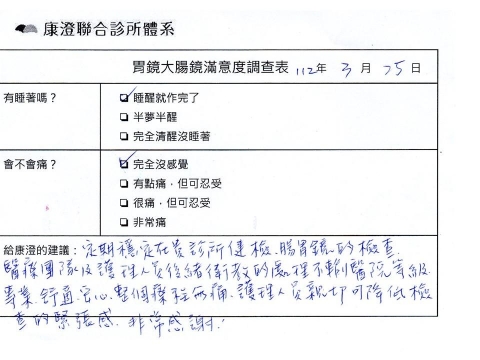 康澄聯合診所體系
胃鏡大腸鏡滿意度調查表 112年 3月 25日
有睡著嗎？
睡醒就作完了
半夢半醒
完全清醒沒睡著
會不會痛？
完全沒感覺
有點痛，但可忍受
很痛，但可忍受
非常痛
給康澄的建議：定期穩定在貴診所健檢、腸胃鏡的檢查
醫療團隊及護理人員後續衛教的處理不輸醫院等級
專業舒適安心整個療程無痛、護理人員親切可降低檢
查的緊張感、非常感謝！